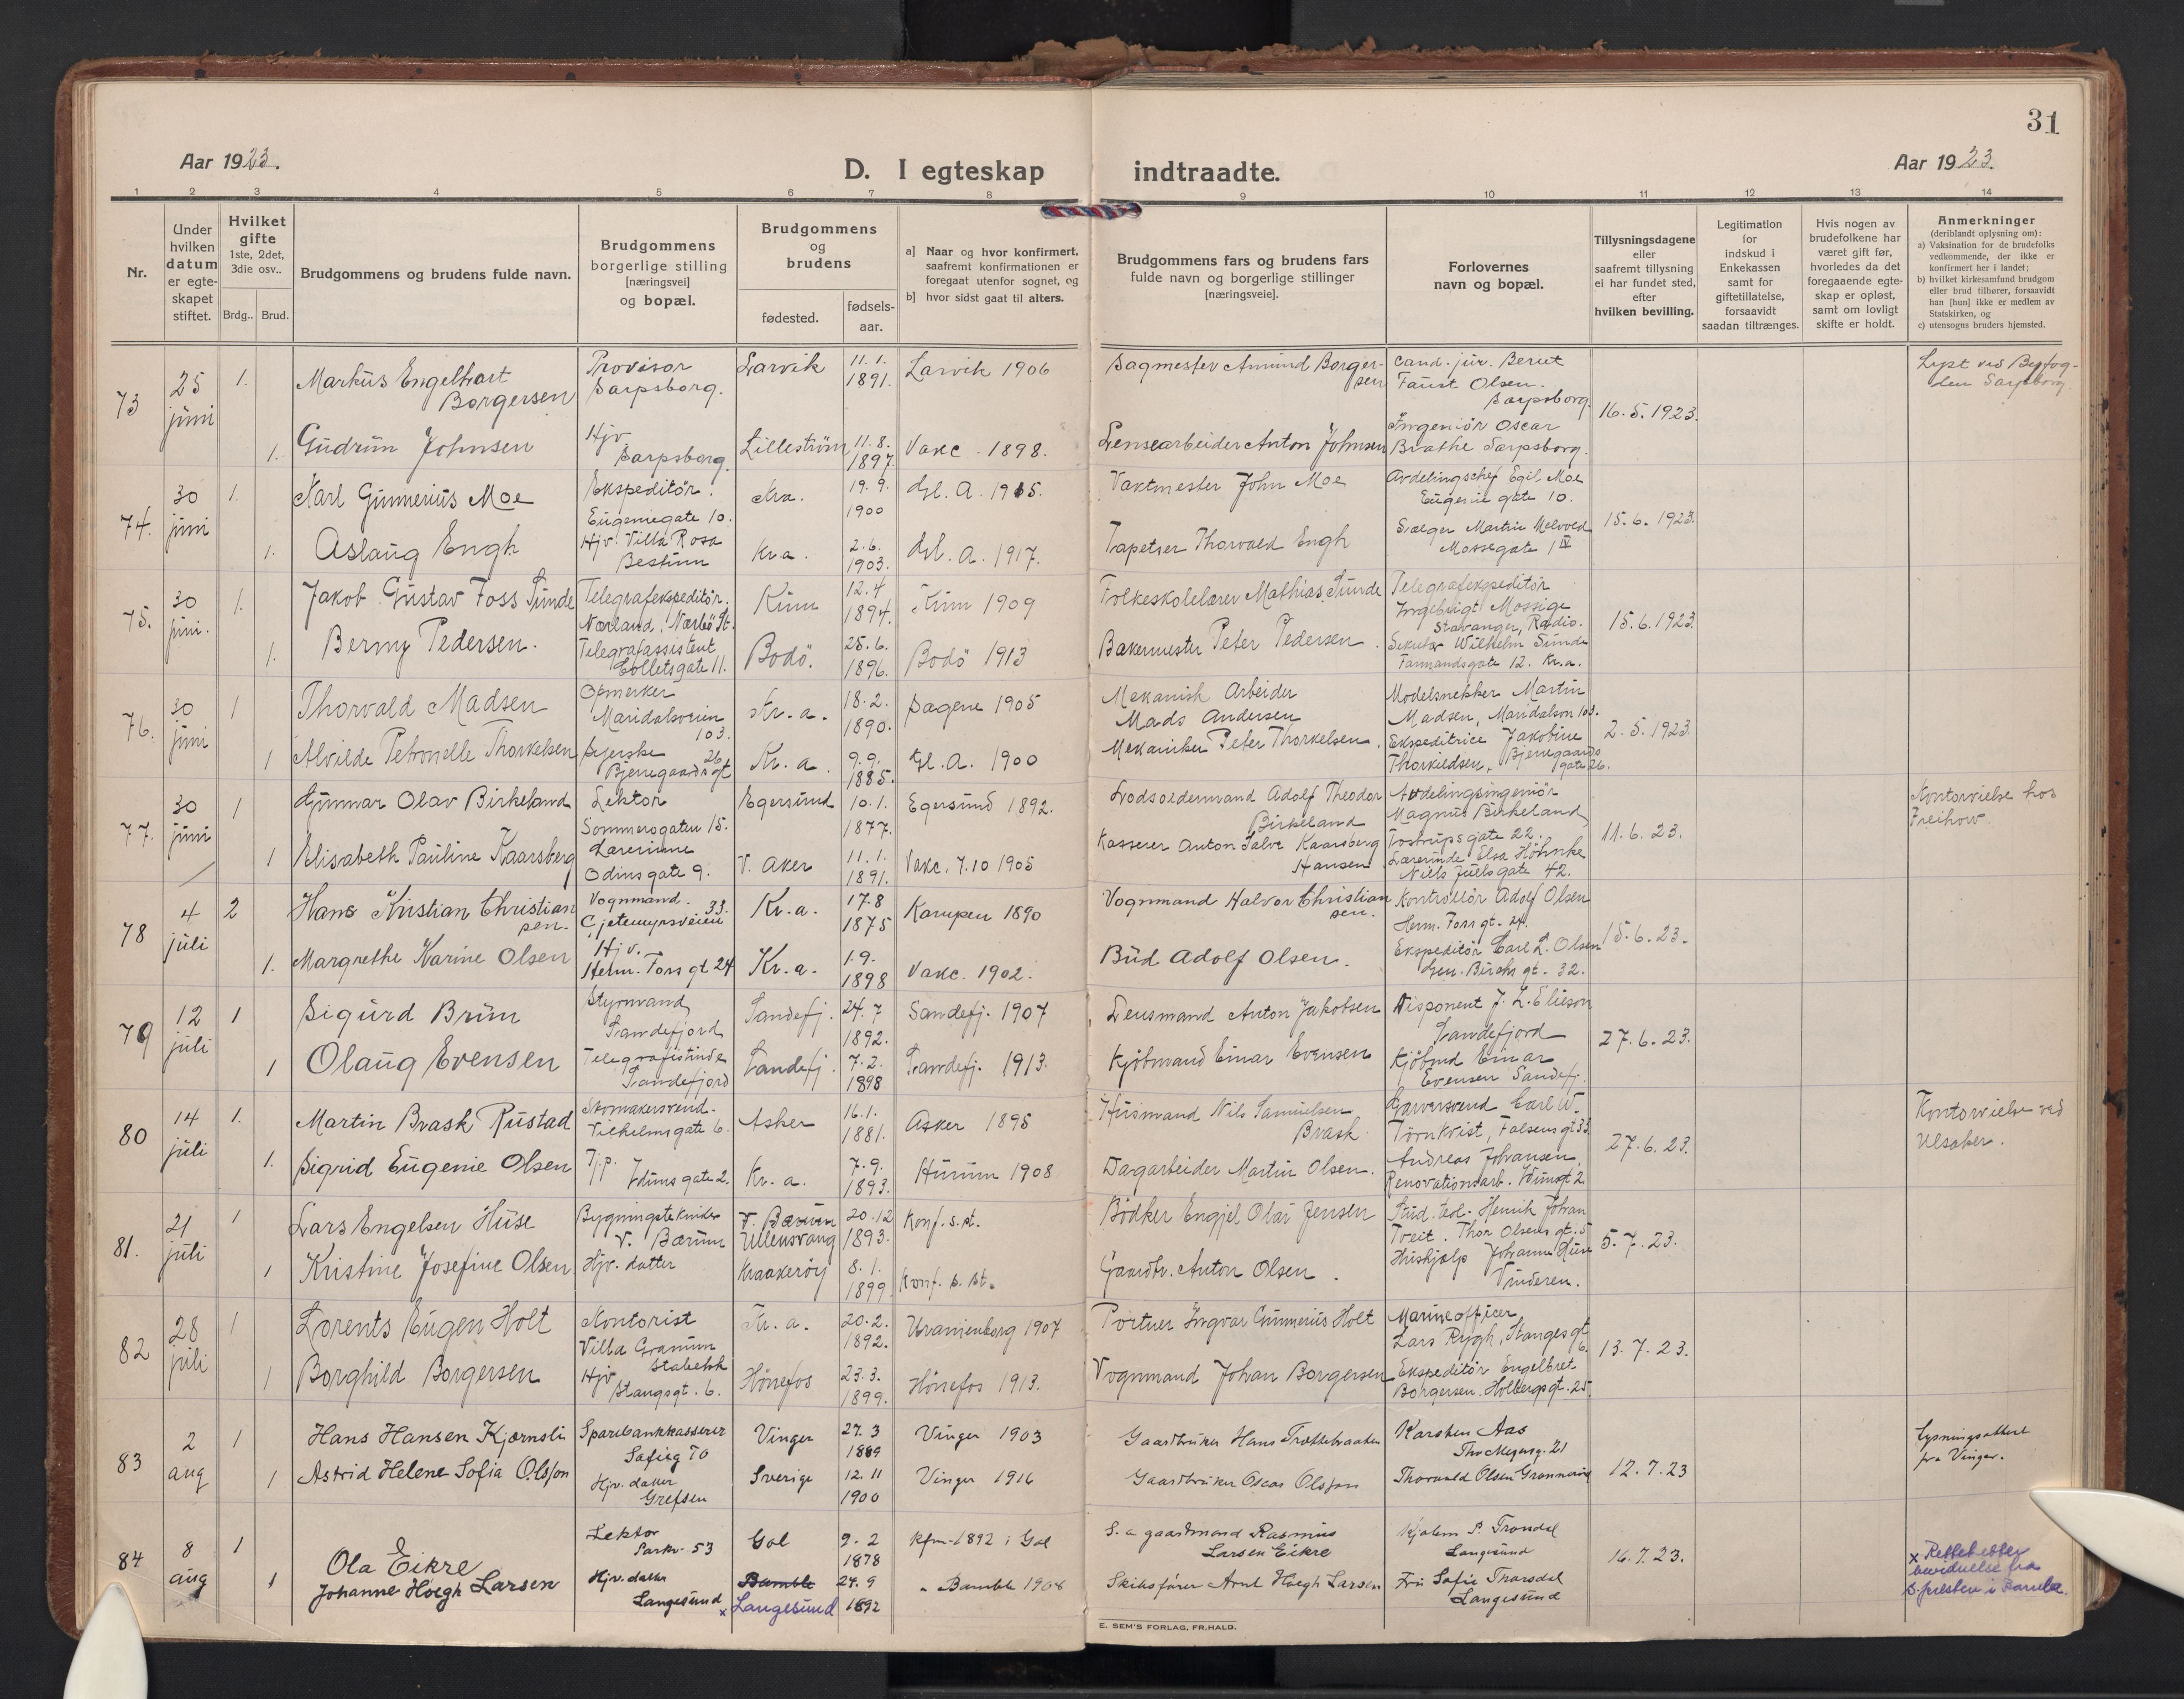 31
Aar 1923.
D. I egteskap indtraadte.
Aar 1923.
1 2 3 4 5 6 7 8 9 10 11 12 13 14
Nr.
Under hvilken datum er egte- skapet stiftet.
Hvilket gifte 1ste, 2det, 3die osv..
Brdg.. Brud.
Brudgommens og brudens fulde navn.
Brudgommens borgerlige stilling [næringsvei] og bopæl.
Brudgommens og brudens
fødested.
fødsels- aar.
a] Naar og hvor konfirmert, saafremt konfirmationen er foregaat utenfor sognet, og
b] hvor sidst gaat til alters.
Brudgommens fars og brudens fars fulde navn og borgerlige stillinger [næringsveie].
Forlovernes navn og bopæl.
Tillysningsdagene eller saafremt tillysning ei har fundet sted, efter hvilken bevilling.
Legitimation for indskud i Enkekassen samt for giftetillatelse, forsaavidt saadan tiltrænges.
Hvis nogen av brudefolkene har været gift før, hvorledes da det foregaaende egte- skap er opløst, samt om lovligt skifte er holdt.
Anmerkninger (deriblandt oplysning om):
a) Vaksination for de brudefolks vedkommende, der ikke er konfirmert her i landet;
b) hvilket kirkesamfund brudgom eller brud tilhører, forsaavidt han [hun] ikke er medlem av Statskirken, og
c) utensogns bruders hjemsted.
73 25 juni 1. Markus Engelhart Borgersen Provisor Sarpsborg. Larvik 11.1. 1891. Larvik 1906 Sagmester Amund Borgersen cand. jur. Berut Faust Olsen. Sarpsborg. 16.5.1923.
1. Gudrun Johnsen Hjv. Sarpsborg. Lillestrøm 11.8. 1897. Vakc. 1898. Lensearbeider Anton Johnsen Ingeniør Oscar Brathe Sarpsborg.
74. 30 juni 1. Karl Gunnerius Moe Ekspeditør. Eugeniegate 10. Kra. 19.9. 1900 Gl. A. 1915. Vaktmester John Moe Avdelingschef Egil Moe Eugenie gate 10. 15.6.1923.
1. Aslaug Engh Hjv. Villa Rosa Bestum Kr.a. 2.6. 1903. Gl. A. 1917. Tapetser Thorvald Engh Sælger Martin Melvold Mossegate 1 IV
75. 30 juni. 1. Jakob Gustav Foss Sunde Telegrafekspeditør. Nærland, Nærbø St. Kinn 12.4 1894. Kinn 1909 Folkeskolelærer Mathias Sunde Telegrafekspeditør Ingebrigt Mossige Stavanger, Radio. 15.6.1923.
1. Berny Pedersen. Telegrafassistent Colletsgate 11. Bodö. 25.6. 1896. Bodö 1913 Bakermester Peter Pedersen. Sekretær Wilhelm Sunde Kr.a.
76. 30 juni 1 Thorvald Madsen Opmerker Maridalsveien 103. Kr.a. 18.2. 1890. Sagene 1905 Mekanisk Arbeider Mads Andersen Modelsnekker Martin Madsen, Maridalsvn 103. 2.5.1923.
1 Alvilde Petronelle Thorkelsen Syerske Bjerregaards gt 26 Kr.a. 9.9. 1885. Gl. A. 1900 Mekaniker Peter Thorkelsen. Ekspeditrice Jakobine Thorkildsen, Bjerregaards gate 26.
77. 30 juni 1 Gunnar Olav Birkeland Lektor Sommersgaten 15. Egersund 10.1. 1877. Egersund 1892. Lodsoldermand Adolf Theodor Birkeland Avdelingsingeniør Magnus Birkeland Tostrupsgate 22. 11.6.23. Kontorvielse hos
1 Elisabeth Pauline Kaarsberg Lærerinne Odinsgate 9. V. Aker 11.1. 1891. Vakc. 7.10 1905 Kasserer Anton Salve Kaarsberg Hansen Lærerinde Elsa Höhnke Niels Juelsgate 42.
78 4 juli 2 Hans Kristian Christiansen. Vognmand. Gjetemyrsveien 33. Kr.a. 17.8 1875 Kampen 1890 Vognmand Halvor Christiansen. Kontrollør Adolf Olsen Herm. Foss gt. 24. 15.6.23.
1. Margrethe Karine Olsen Hjv. Herm. Foss gt 24 Kr.a. 1.9. 1898 Vakc. 1902. Bud Adolf Olsen. Ekspeditør Carl L. Olsen Gen. Birchs gt. 32.
79 12 juli 1 Sigurd Brun Styrmand Sandefjord Sandefj. 24.7 1892. Sandefj. 1907 Lensmand Anton Jakobsen Disponent J. L. Elieson Sandefjord 27.6.23.
1 Olaug Evensen Telegrafistinde Sandefjord Sandefj. 7.2. 1898 Sandefj. 1913. Kjöbmand Einar Evensen Kjöbmd Einar Evensen Sandefj.
80 14 juli 1. Martin Brask Rustad Skomakersvend. Vilhelmsgate 6. Asker 16.1. 1881. Asker 1895 Husmand Nils Samuelsen Brask Garversvend Carl W. Törnkvist, Falsens gt 33 27.6.23. Kontorvielse ved Ulsaker.
1. Sigrid Eugenie Olsen Tjp. Iduns gate 2. Kr.a. 7.9. 1893. Hurum 1908 Dagarbeider Martin Olsen. Andreas Johansen Renovationsarb. Idunsgt 2.
81. 21 juli 1 Lars Engelsen Huse Bygningstekniker V. Bærum V. Bærum Ullensvang 20.12 1893. Konf. s. st. Bödker Engjel Olai Jensen Stud. Henrik Johan Tveit. Thor Olsens gt. 5 5.7.23.
1 Kristine Josefine Olsen Hjv. datter Kraakeröy 8.1. 1899. Konf. s. st. Gaardbr. Anton Olsen. Hushjælp Johanne Huse Vinderen.
82 28 juli 1 Lorents Eugen Holt Kontorist Villa Granum Stabekk Kr.a. 20.2. 1892. Uranienborg 1907 Portner Ingvar Gunnerius Holt Marineofficer Lars Rygh, Stanges gt 6. 13.7.23.
1 Borghild Borgersen Hjv Stangsgt. 6. Hönefos 23.3. 1899. Hönefos 1913. Vognmand Johan Borgersen Ekspeditör Engelbret Borgersen. Holbergsgt. 25.
83 2 aug 1 Hans Hansen Kjærnsli Sparebankkasserer Sofieg 70 Vinger 27.3 1889 Vinger 1903 Gaardbruker Hans Karsten Aas Th. Meyersg. 21 12.7.23 Lysningsattest fra Vinger.
1 Astrid Helene Sofia Olsson Hjv. datter Grefsen Sverige 12.11 1900 Vinger 1916 Gaardbruker Oscar Olsson Thorvald Olsen
84 8 aug 1 Ola Eikre Lektor Parkv. 53 Gol 9.2 1878 Kfm. 1892 i Gol S. a gaardmand Rasmus Larsen Eikre Langesund 16.7.23. x Rettet efter
1 Johanne Høegh Larsen Hjv. datter Langesund Bamble x Langesund 24.9 1892 " Bamble 1908 Skibsfører Arnt Høegh Larsen Fru Sofie Langesund
E. SEM'S FORLAG, FR.HALD.